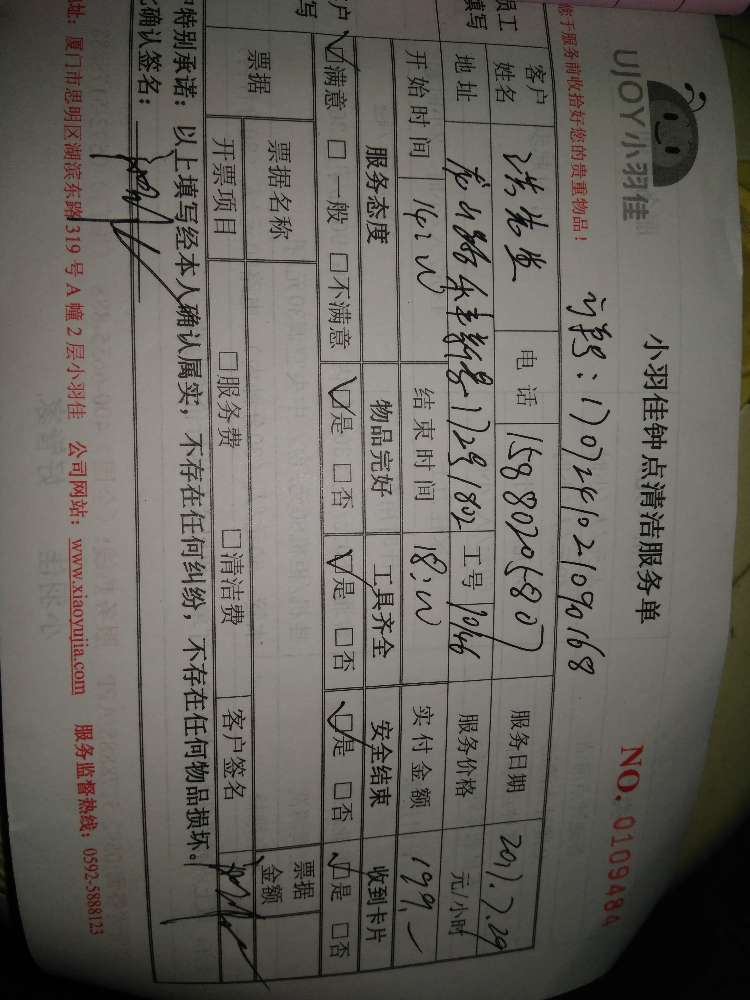 UJOY 小羽佳
小羽佳钟点清洁服务单
NO. 0109484
您于服务前收拾好您的贵重物品!
单号: 1707241021090168
员工
填写
客户
姓名
电话 15880205807
服务日期 2017.7.29
地址
工号 10146
服务价格 元/小时
开始时间 14:00
结束时间 18:00
实付金额 199.-
户
写
服务态度 物品完好 工具齐全 安全结束 收到卡片
☑满意 □一般 □不满意 ☑是 □否 ☑是 □否 ☑是 □否 ☑是 □否
票据
票据名称
票据
金额
开票项目 □服务费 □清洁费 客户签名
特别承诺:以上填写经本人确认属实,不存在任何纠纷,不存在任何物品损坏。
确认签名:
址:厦门市思明区湖滨东路319号A幢2层小羽佳 公司网站:www.xiaoyujia.com 服务监督热线:0592-5888123